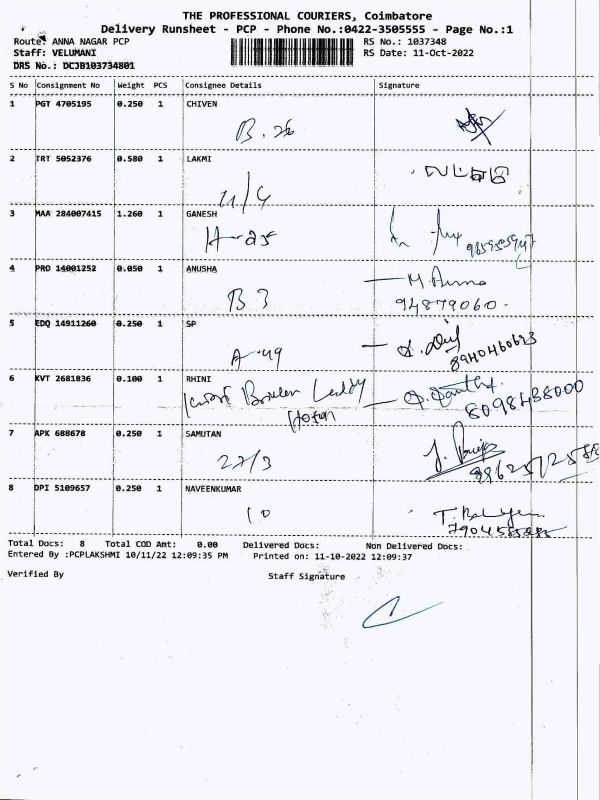 THE PROFESSIONAL COURIERS, Coimbatore
Delivery Runsheet - PCP - Phone No.:0422-3505555 - Page No.:1
Route: ANNA NAGAR PCP RS No.: 1037348
Staff: VELUMANI RS Date: 11-Oct-2022
DRS No.: DCJB103734801
S No Consignment No Weight PCS Consignee Details Signature
1 PGT 4705195 0.250 1 CHIVEN
B.26
2 TRT 5052376 0.580 1 LAKMI
லட்சுமி
11/4
3 MAA 284007415 1.260 1 GANESH
A-25
4 PRO 14001252 0.050 1 ANUSHA
B 3 94879060-
5 EDQ 14911260 0.250 1 SP
A-49 8940460673
6 KVT 2681836 0.100 1 RHINI
8098488000
7 APK 688678 0.250 1 SAMUTAN
27/3
8 DPI 5109657 0.250 1 NAVEENKUMAR
10
Total Docs: 8 Total COD Amt: 0.00 Delivered Docs: Non Delivered Docs:
Entered By :PCPLAKSHMI 10/11/22 12:09:35 PM Printed on: 11-10-2022 12:09:37
Verified By Staff Signature